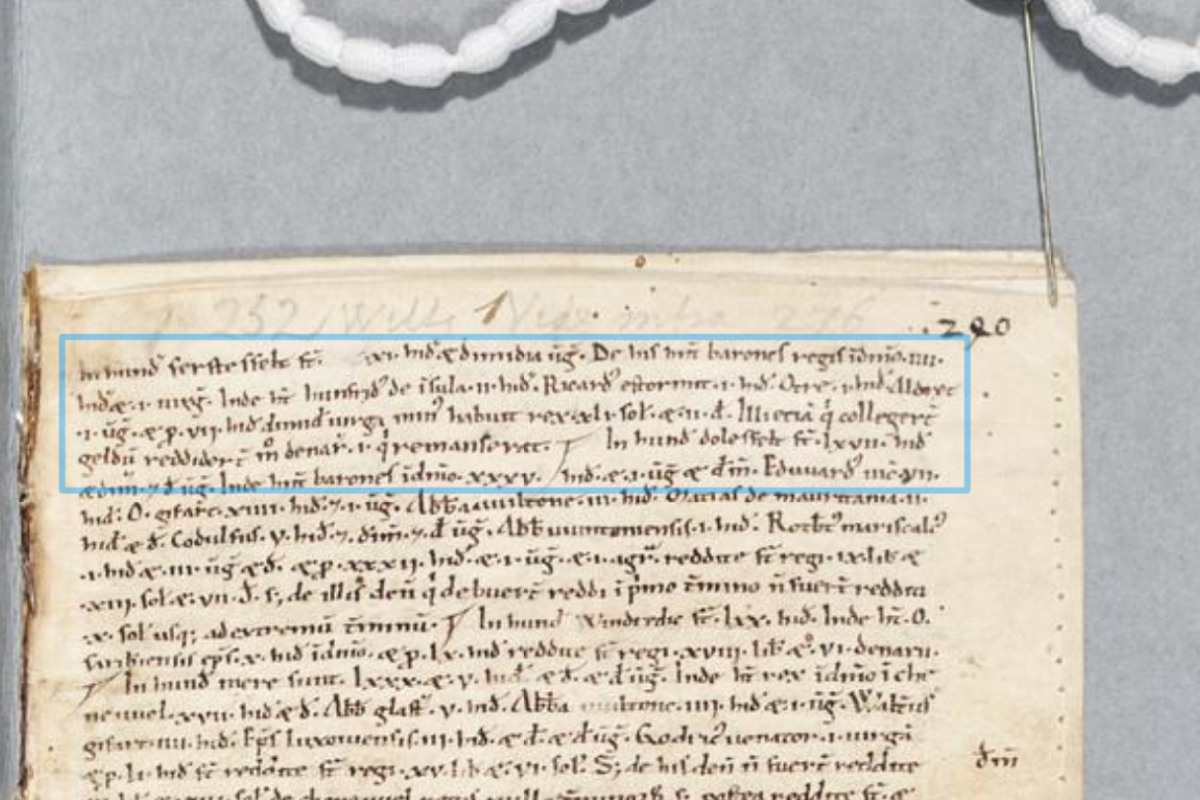 252 Wilts Vide infra 276
290
In hund sexstesselt st̄. xi. hid. & dimidia ūg. De his hn̄t barones regis ī dn̄io. iiii.
hid. &. i. uirg. Inde ht̄ hunfrid' de īsula. ii. hid. Ricard' estormit. i. hid. Otre. i. hid. Aldret
.i. ūg. & p. vii. hid. dimid uirgi min' habuit rex. xli. sol. &. ii. d. Illi etiā q' collegert̄
geldū reddidert̄ m̊ denar. i. q' remanserat. In hund dolesfelt st̄. lxvii. hid
& dim. & d ūg. Inde hn̄t barones ī dn̄io. xxxv. hid. &. i. ūg & dim. Eduuard' uic. vii.
hid. O. gifart. xiiii. hid. &. i. ūg. Abb' a uuiltone. iii. hid. Macial de mauritania. ii.
hid. & d. Codulfus. v. hid. &. dim. & d ūg. Abb' uuintoniensis. i. hid. Rotb't' mariscal'
.i. hid &. iii. ūg & d. & p. xxxii. hid. &. i. ūg. &. i. agr. reddite st̄ regi. ix. lib &
.xiii. sol. &. vii. d. s; de illis den̄ q' debuert̄ reddi ī p'mo t̄mino n̄ fuert̄ reddita
.x. sol usq; ad extremū t̄minū. In hund Windredic st̄. lxx. hid. Inde ht̄. O.
sarisiensis ep̄s. x. hid ī dn̄io. & p. lx. hid reddite st̄ regi. xviii. lib. &. vi. denarii.
In hund mere sunt. lxxx. &. v. hid. & d. & d ūg. Inde ht̄ rex ī dn̄io ī che
neuuel. xvii. hid & d. Abb' glast. v. hid. Abb'a uuiltone. iiii. hid &. i. ūg. Walt̄us
gifart. iiii. hid. Ep̄s luxouiensis. iii. hid. & d. & d ūg. Godric' uenator. i. uirgā
& p. li. hid st̄ reddite st̄ regi. xv. lib. &. vi. sol. S; de his den̄ n̄ fuert̄ reddite
dim